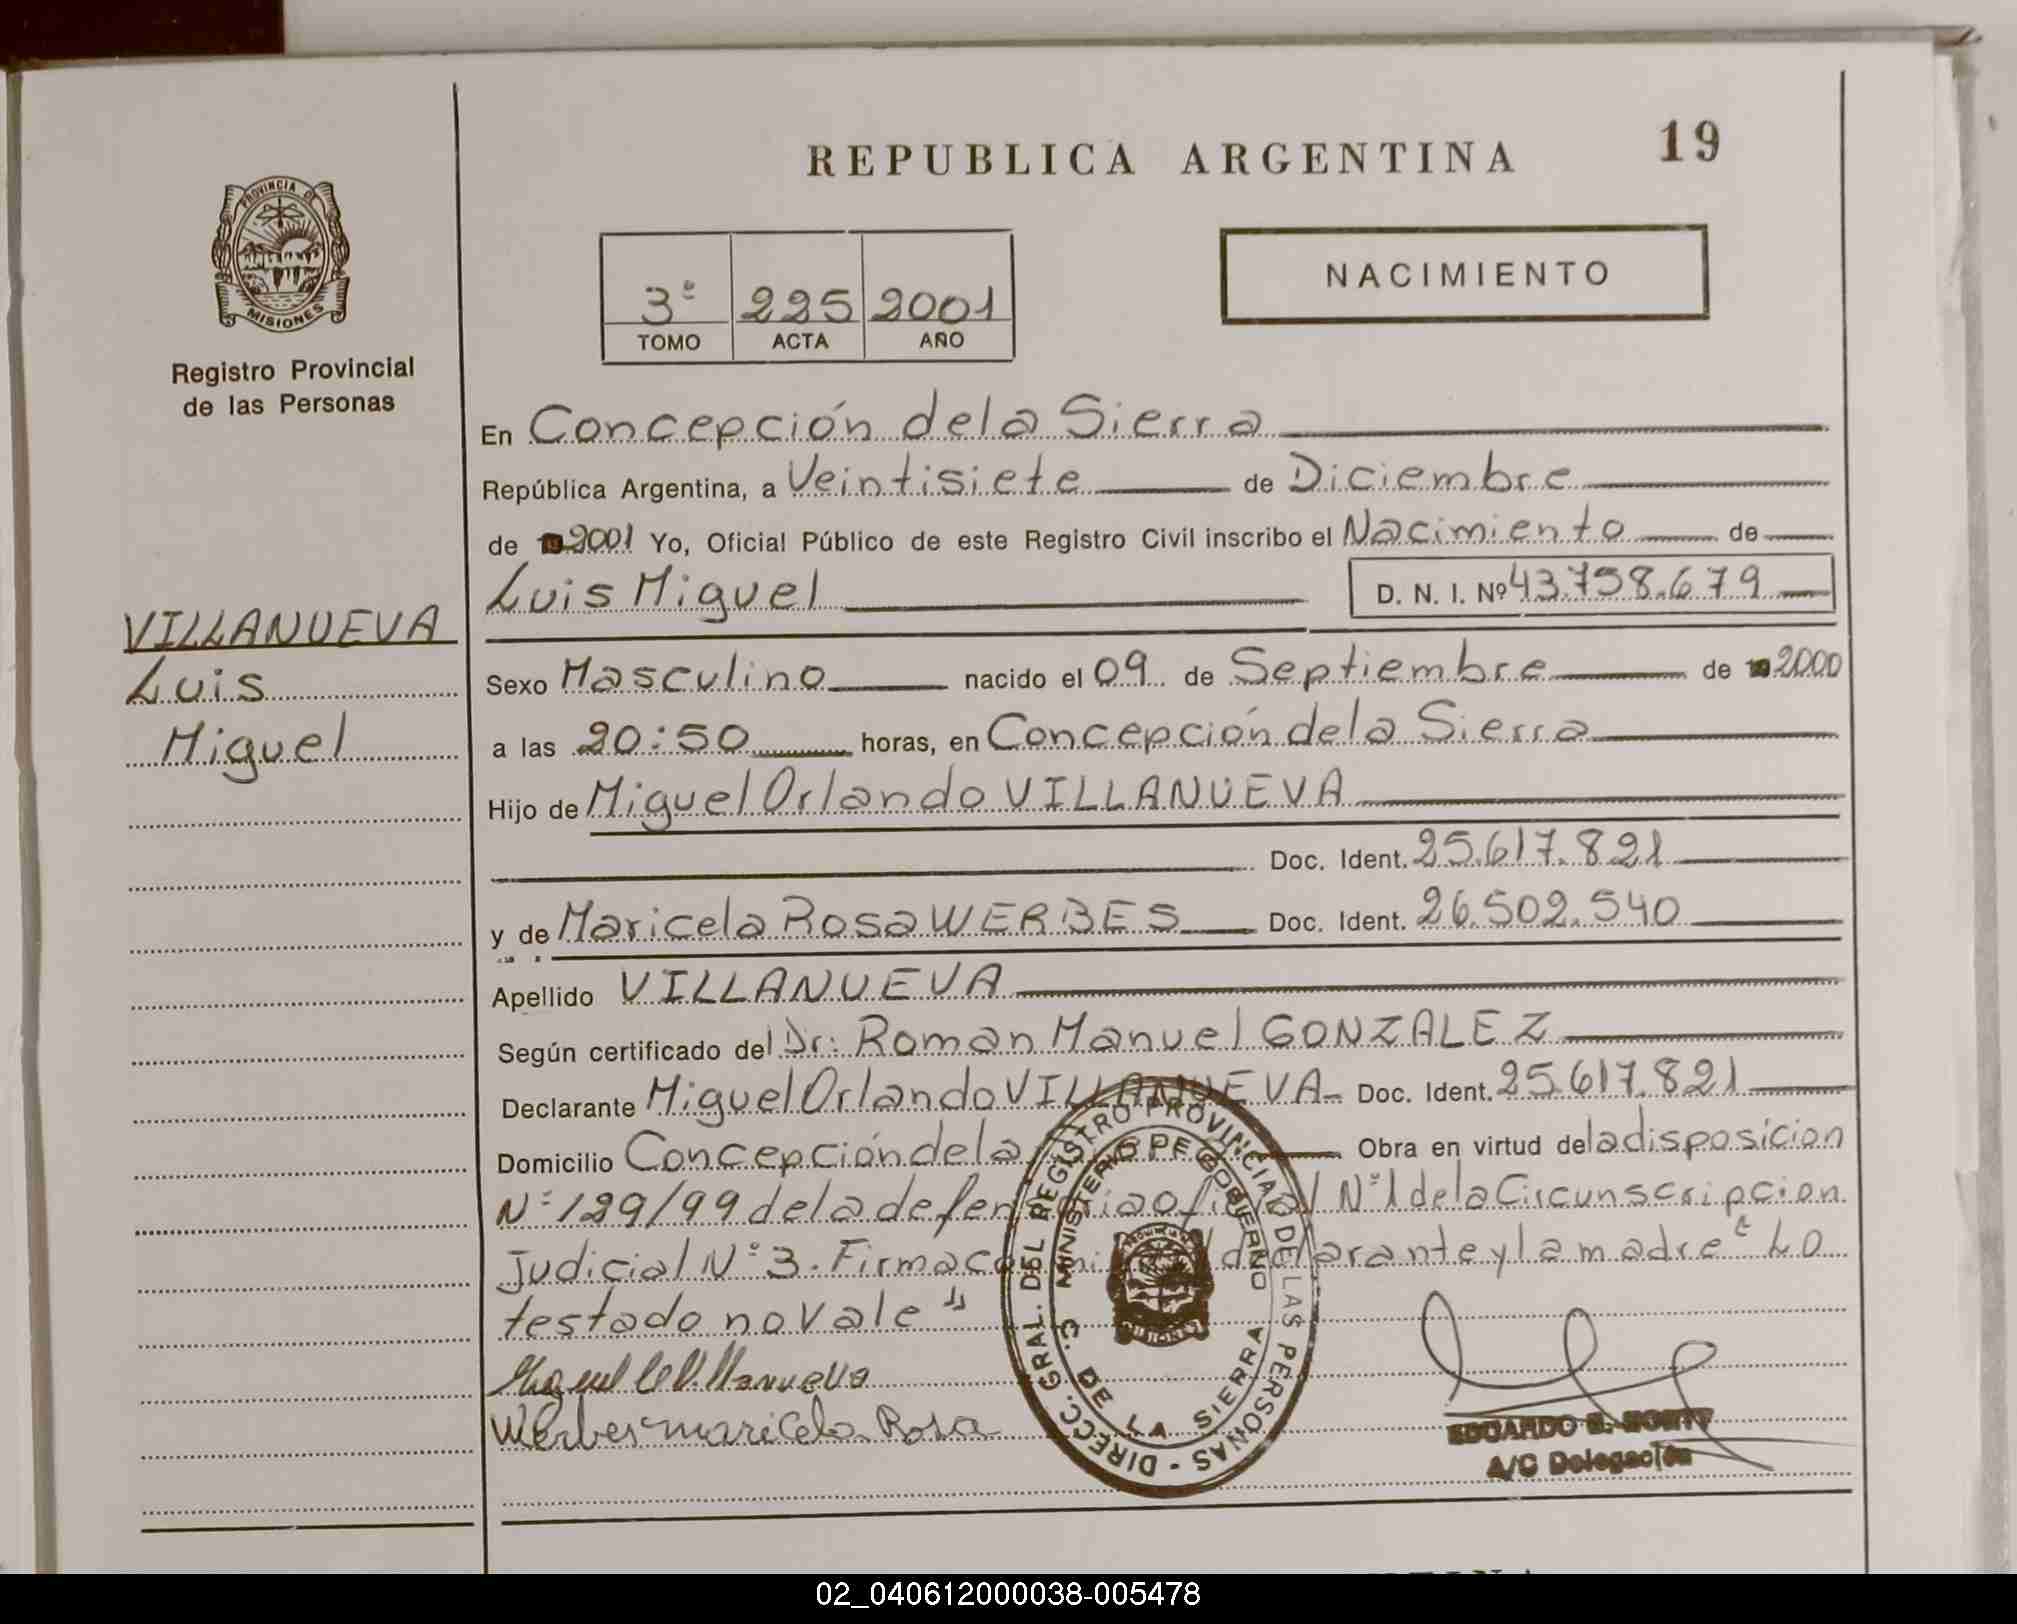 REPUBLICA ARGENTINA
19
PROVINCIA DE
MISIONES
Registro Provincial
de las Personas
3º 225 2001
TOMO ACTA AÑO
NACIMIENTO
En Concepción de la Sierra
República Argentina, a Veintisiete de Diciembre
de 2001 Yo, Oficial Público de este Registro Civil inscribo el Nacimiento de
Luis Miguel D. N. I. Nº 43.758.679
VILLANUEVA
Luis
Miguel
Sexo Masculino nacido el 09 de Septiembre de 2000
a las 20:50 horas, en Concepción de la Sierra
Hijo de Miguel Orlando VILLANUEVA
Doc. Ident. 25.617.821
y de Maricela Rosa WERBES Doc. Ident. 26.502.540
Apellido VILLANUEVA
Según certificado del Dr: Roman Manuel GONZALEZ
Declarante Miguel Orlando VILLANUEVA Doc. Ident. 25.617.821
Domicilio Concepción de la Obra en virtud de la disposicion
Nº 129/99 de la defensoria oficial Nº 1 de la Circunscripcion
Judicial Nº 3. Firma declarante y la madre "Lo
testado no vale"
Miguel O Villanueva
Werbes maricela Rosa
DIRECC. GRAL. DEL REGISTRO PROVINCIAL DE LAS PERSONAS -
MINISTERIO DE GOBIERNO
C. DE LA SIERRA
MISIONES
EDUARDO
A/C Delegación
02_040612000038-005478